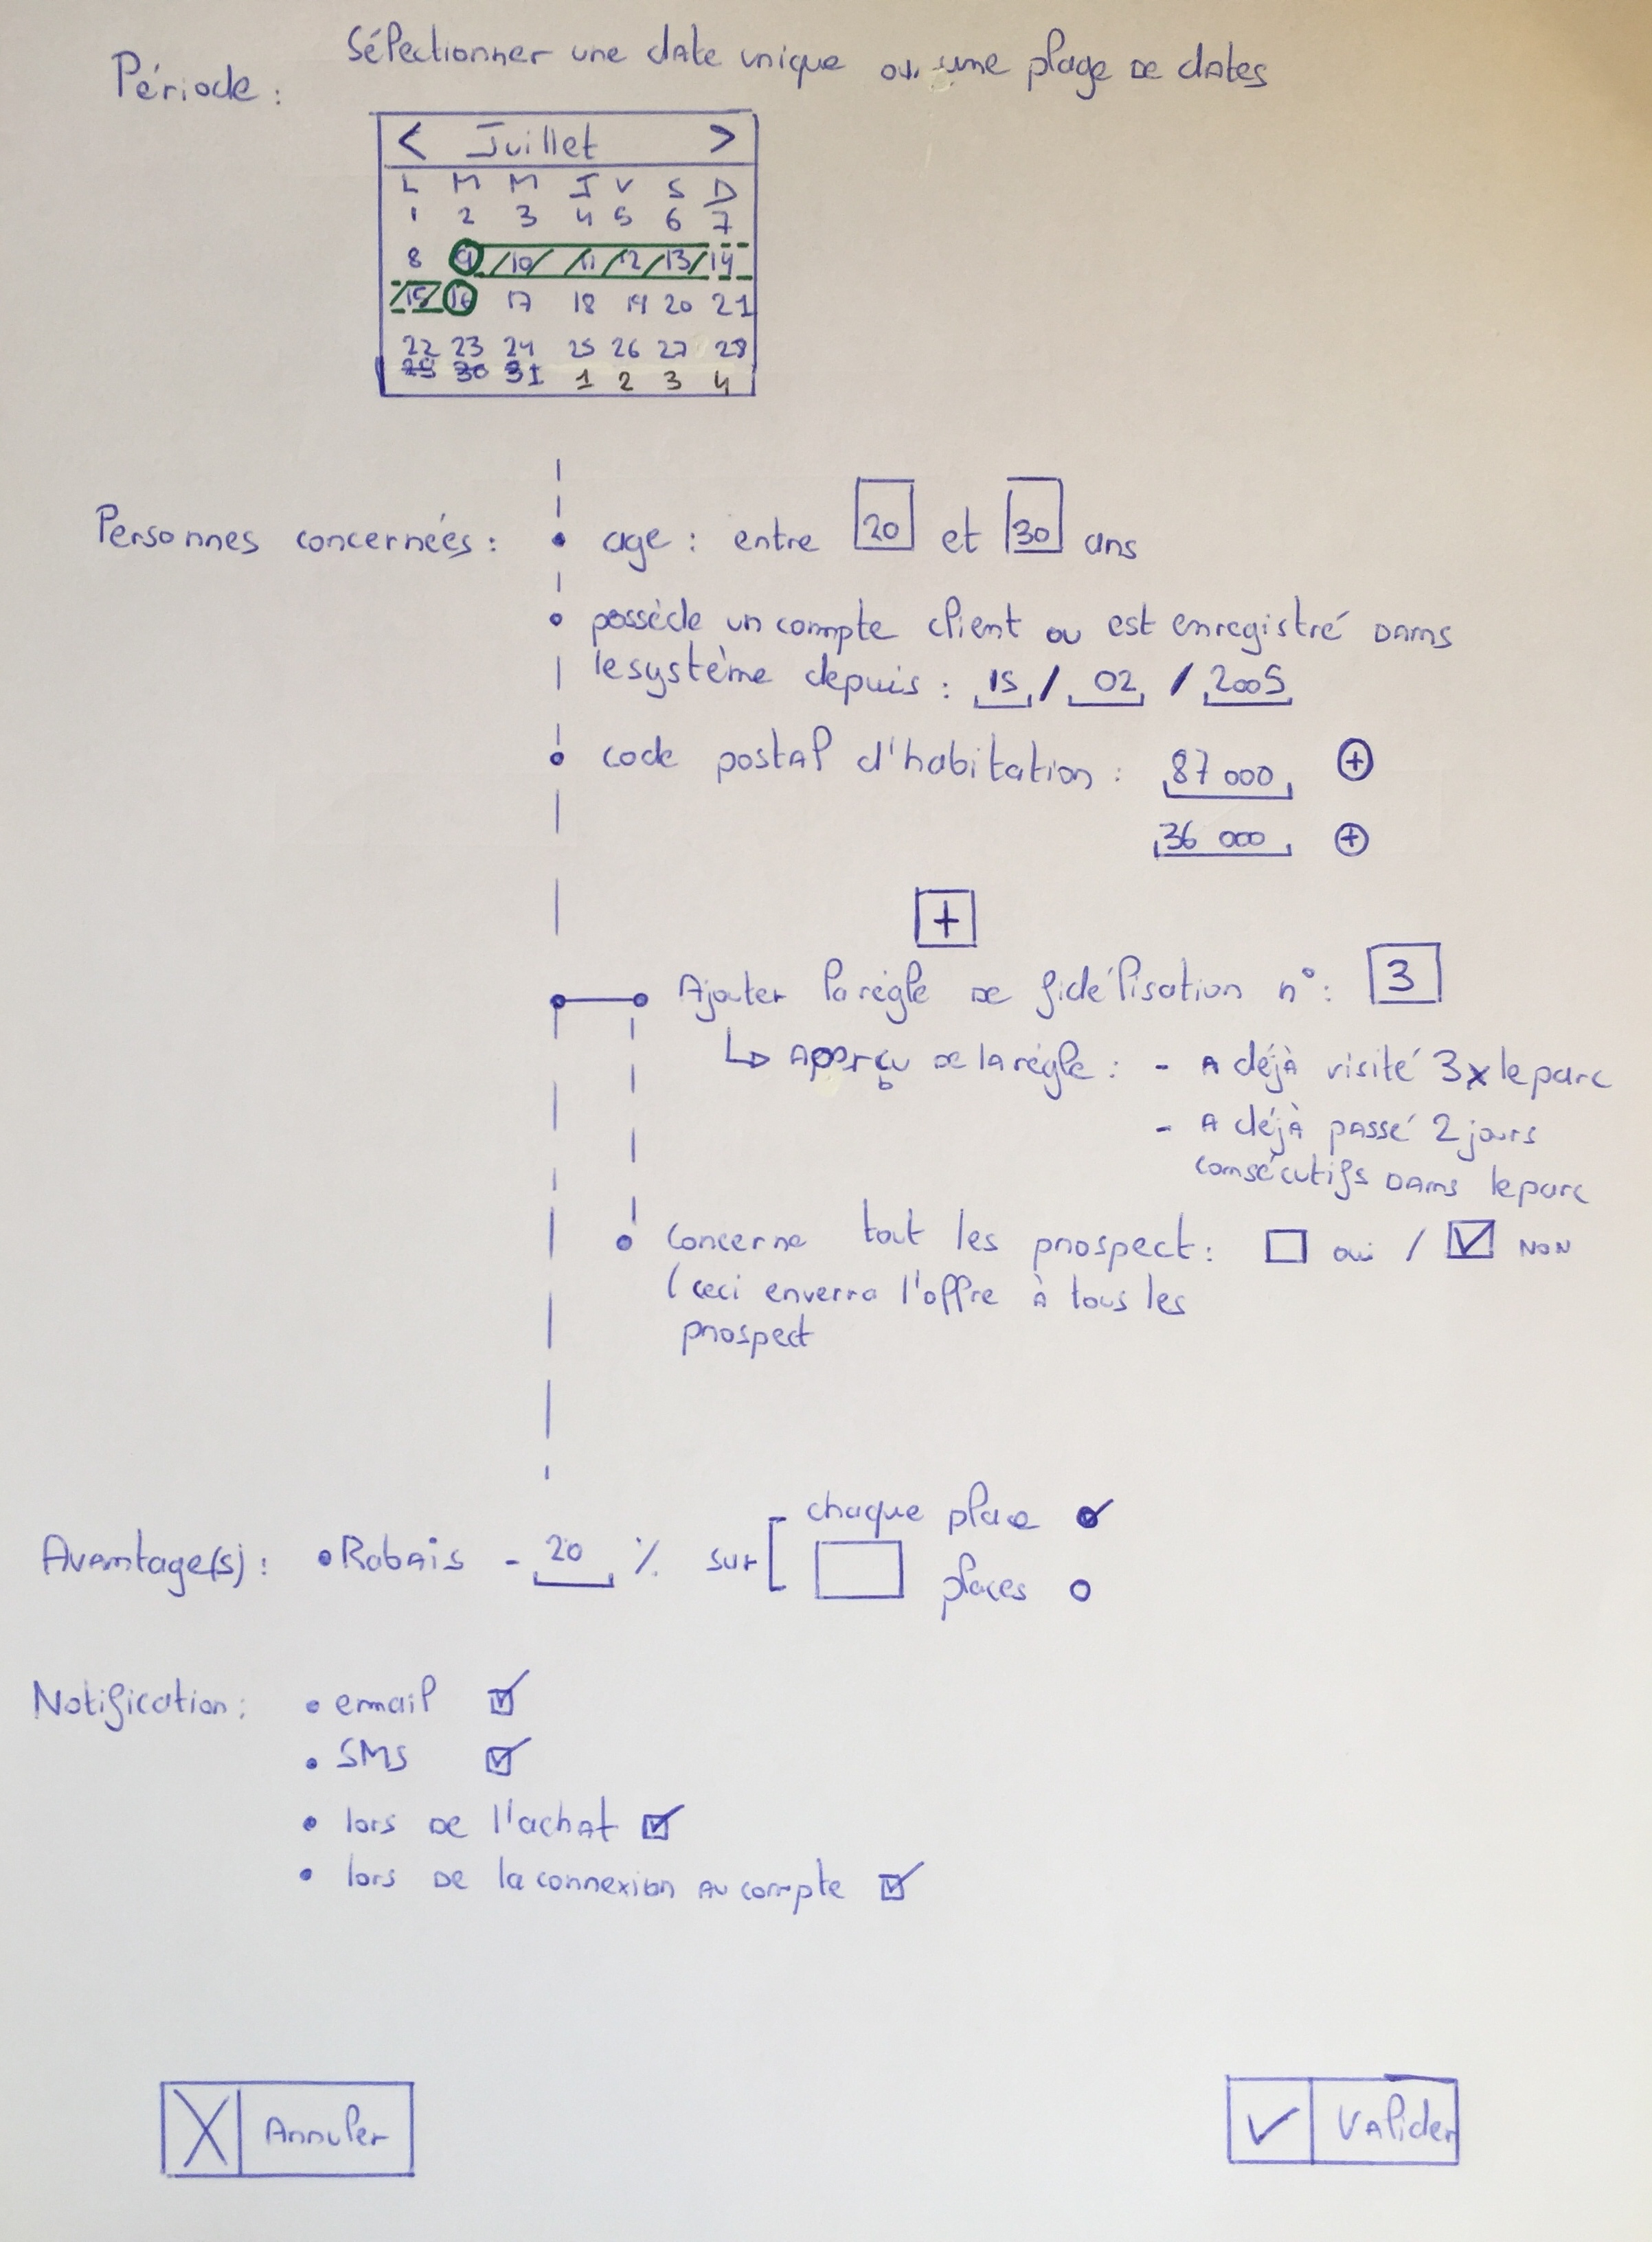 Sélectionner une date unique ou une plage de dates
Période :
< Juillet >
L M M J V S D
1 2 3 4 5 6 7
8 9 10 11 12 13 14
15 16 17 18 19 20 21
22 23 24 25 26 27 28
29 30 31 1 2 3 4
Personnes concernées : • age : entre 20 et 30 ans
• possède un compte client ou est enregistré dans
le système depuis : 15 / 02 / 2005
• code postal d'habitation : 87 000 +
36 000 +
+
Ajouter la règle de fidélisation n° : 3
↳ Aperçu de la règle : - A déjà visité 3x le parc
- A déjà passé 2 jours
consécutifs dans le parc
• Concerne tout les prospect : ☐ oui / ☑ NON
(ceci enverra l'offre à tous les
prospect
Avantage(s) : • Rabais - 20 % sur [ chaque place
places
Notification : • email ☑
• SMS ☑
• lors de l'achat ☑
• lors de la connexion au compte ☑
X Annuler
✓ Valider